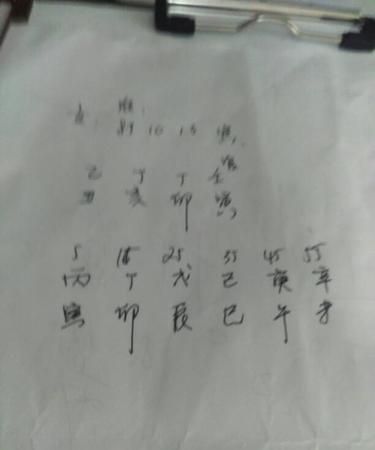 10 15
乙 丁 丁 壬
丑 亥 卯 寅
5 15 25 35 45 55
丙 丁 戊 己 庚 辛
寅 卯 辰 巳 午 未